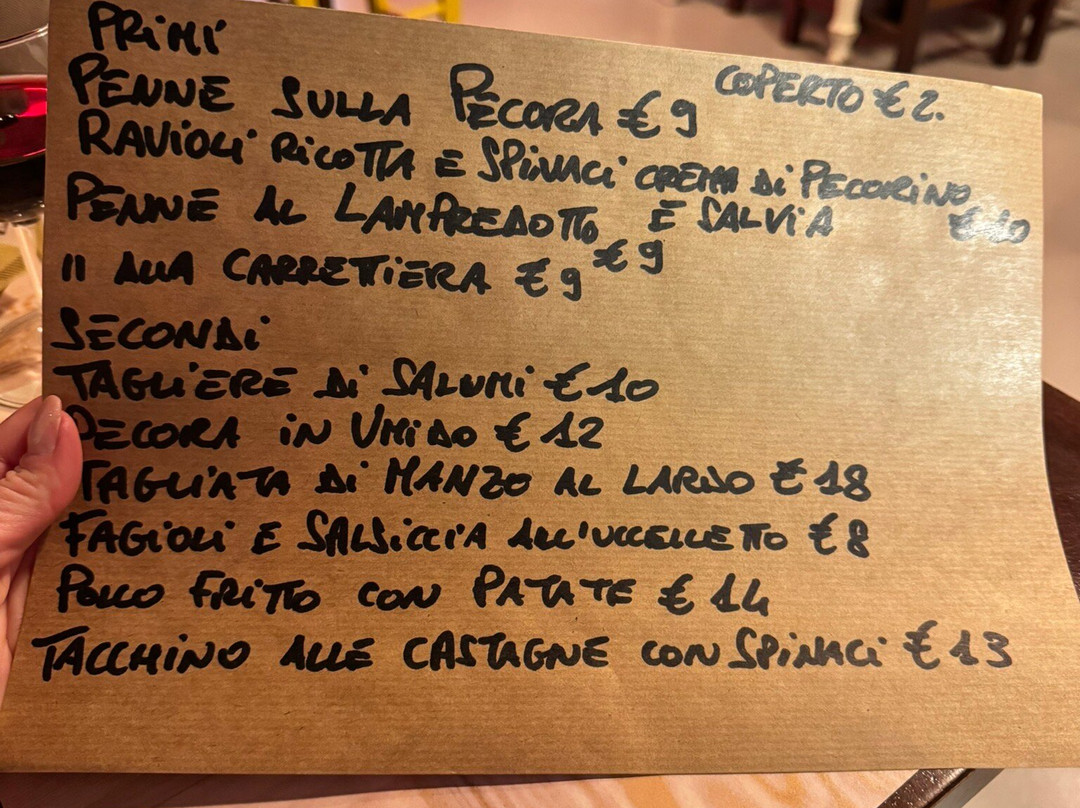 PRIMI
COPERTO € 2.
PENNE SULLA PECORA € 9
RAVIOLI RICOTTA E SPINACI CREMA DI PECORINO
€ 10
PENNE AL LAMPREDOTTO E SALVIA
€ 9
" ALLA CARRETTIERA € 9
SECONDI
TAGLIERE DI SALUMI € 10
PECORA IN UMIDO € 12
TAGLIATA DI MANZO AL LARDO € 18
FAGIOLI E SALSICCIA ALL'UCCELLETTO € 8
POLLO FRITTO CON PATATE € 14
TACCHINO ALLE CASTAGNE CON SPINACI € 13